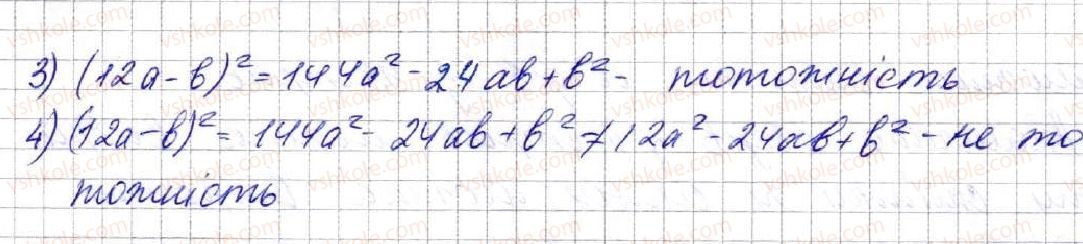 3) (12a-b)² = 144a² - 24ab + b² - тотожність
4) (12a-b)² = 144a² - 24ab + b² ≠ 12a² - 24ab + b² - не то
тожність